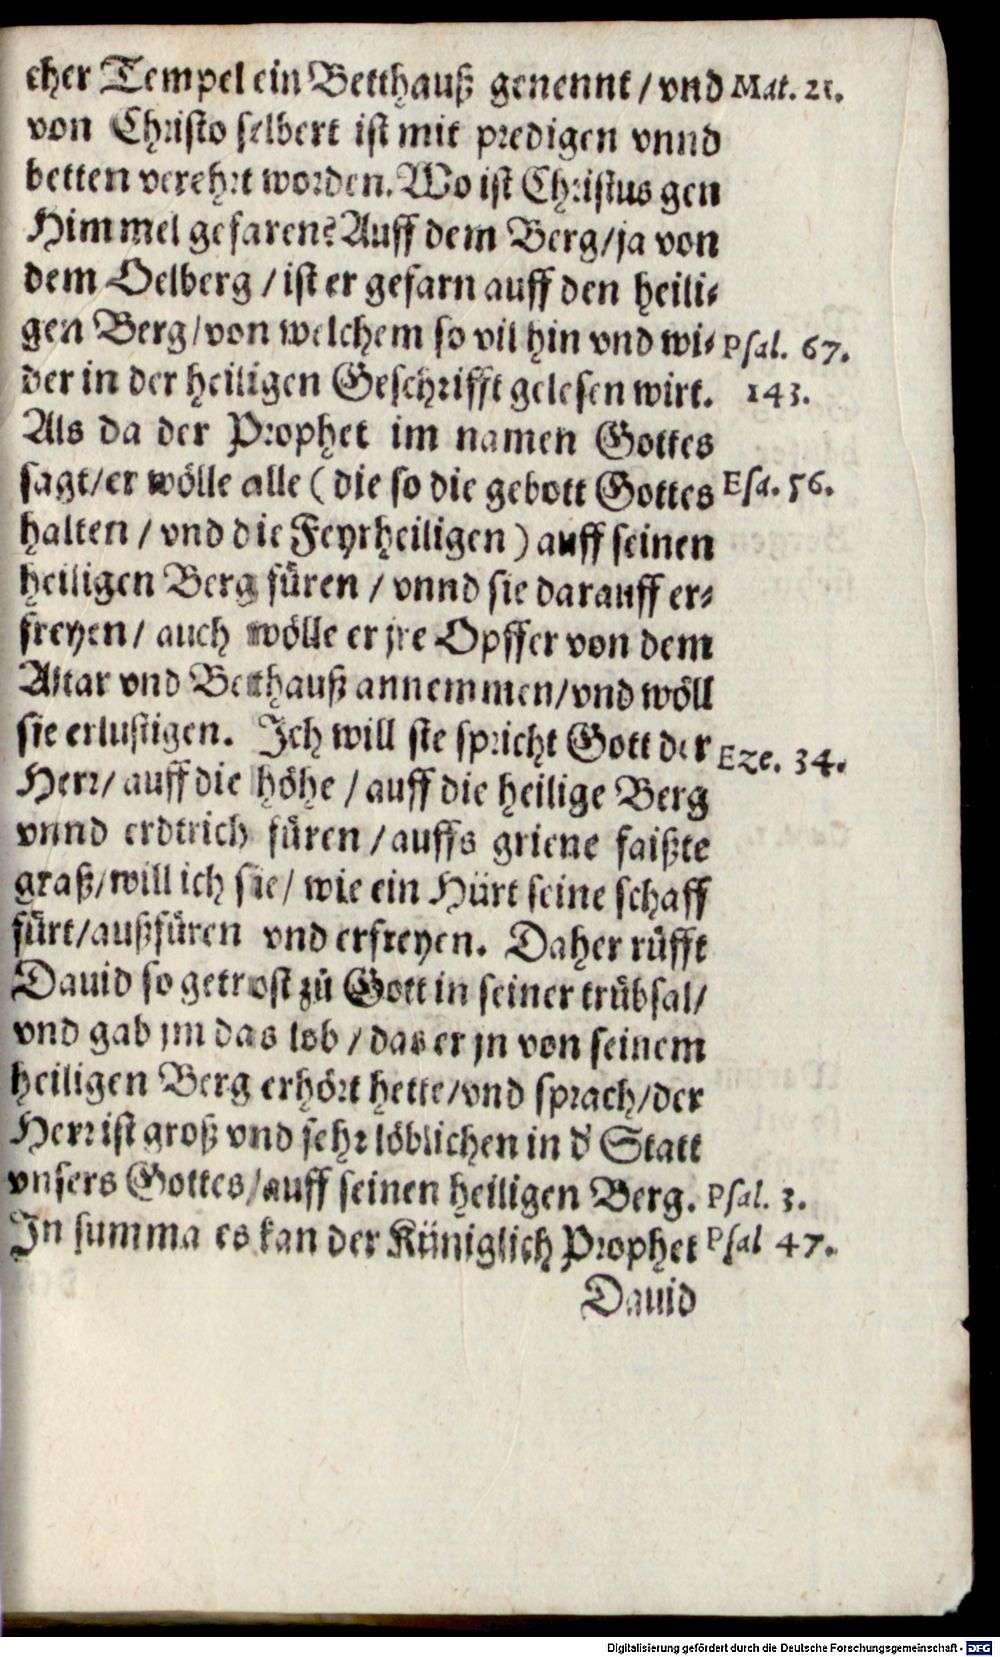 cher Tempel ein Betthauß genennt / vnd Mat. 21.
von Christo selbert ist mit predigen vnnd
betten verehrt worden. Wo ist Christus gen
Himmel gefaren? Auff dem Berg / ja von
dem Oelberg / ist er gefarn auff den heili-
gen Berg / von welchem so vil hin vnd wi- Psal. 67.
der in der heiligen Geschrifft gelesen wirt. 143.
Als da der Prophet im namen Gottes
sagt / er wölle alle ( die so die gebott Gottes Esa. 56.
halten / vnd die Feyrheiligen ) auff seinen
heiligen Berg füren / vnnd sie darauff er-
freyen / auch wölle er jre Opffer von dem
Altar vnd Betthauß annemmen / vnd wöll
sie erlustigen. Ich will sie spricht Gott der Eze. 34.
Herr / auff die höhe / auff die heilige Berg
vnnd erdtrich füren / auffs griene faißte
graß / will ich sie / wie ein Hürt seine schaff
fürt / außfüren vnd erfreyen. Daher rüfft
Dauid so getrost zů Gott in seiner trübsal /
vnd gab jm das lob / das er jn von seinem
heiligen Berg erhört hette / vnd sprach / der
Herr ist groß vnd sehr löblichen in d' Statt
vnsers Gottes / auff seinen heiligen Berg. Psal. 3.
In summa es kan der Küniglich Prophet Psal 47.
Dauid
Digitalisierung gefördert durch die Deutsche Forschungsgemeinschaft - DFG